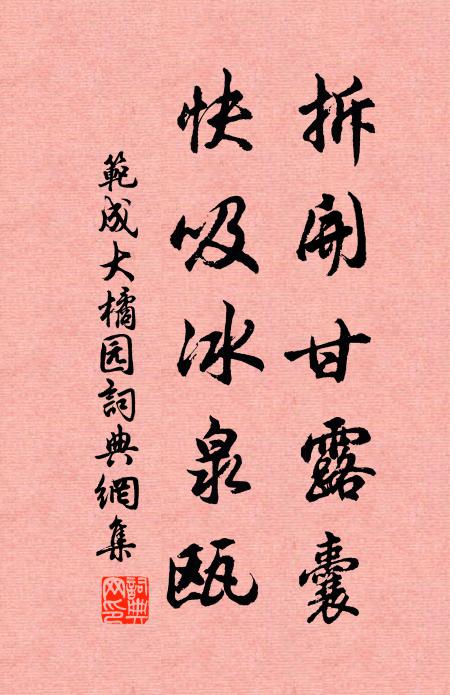 拆開甘露囊
快吸冰泉瓯
範成大橘园詞典網集
詞典
网印